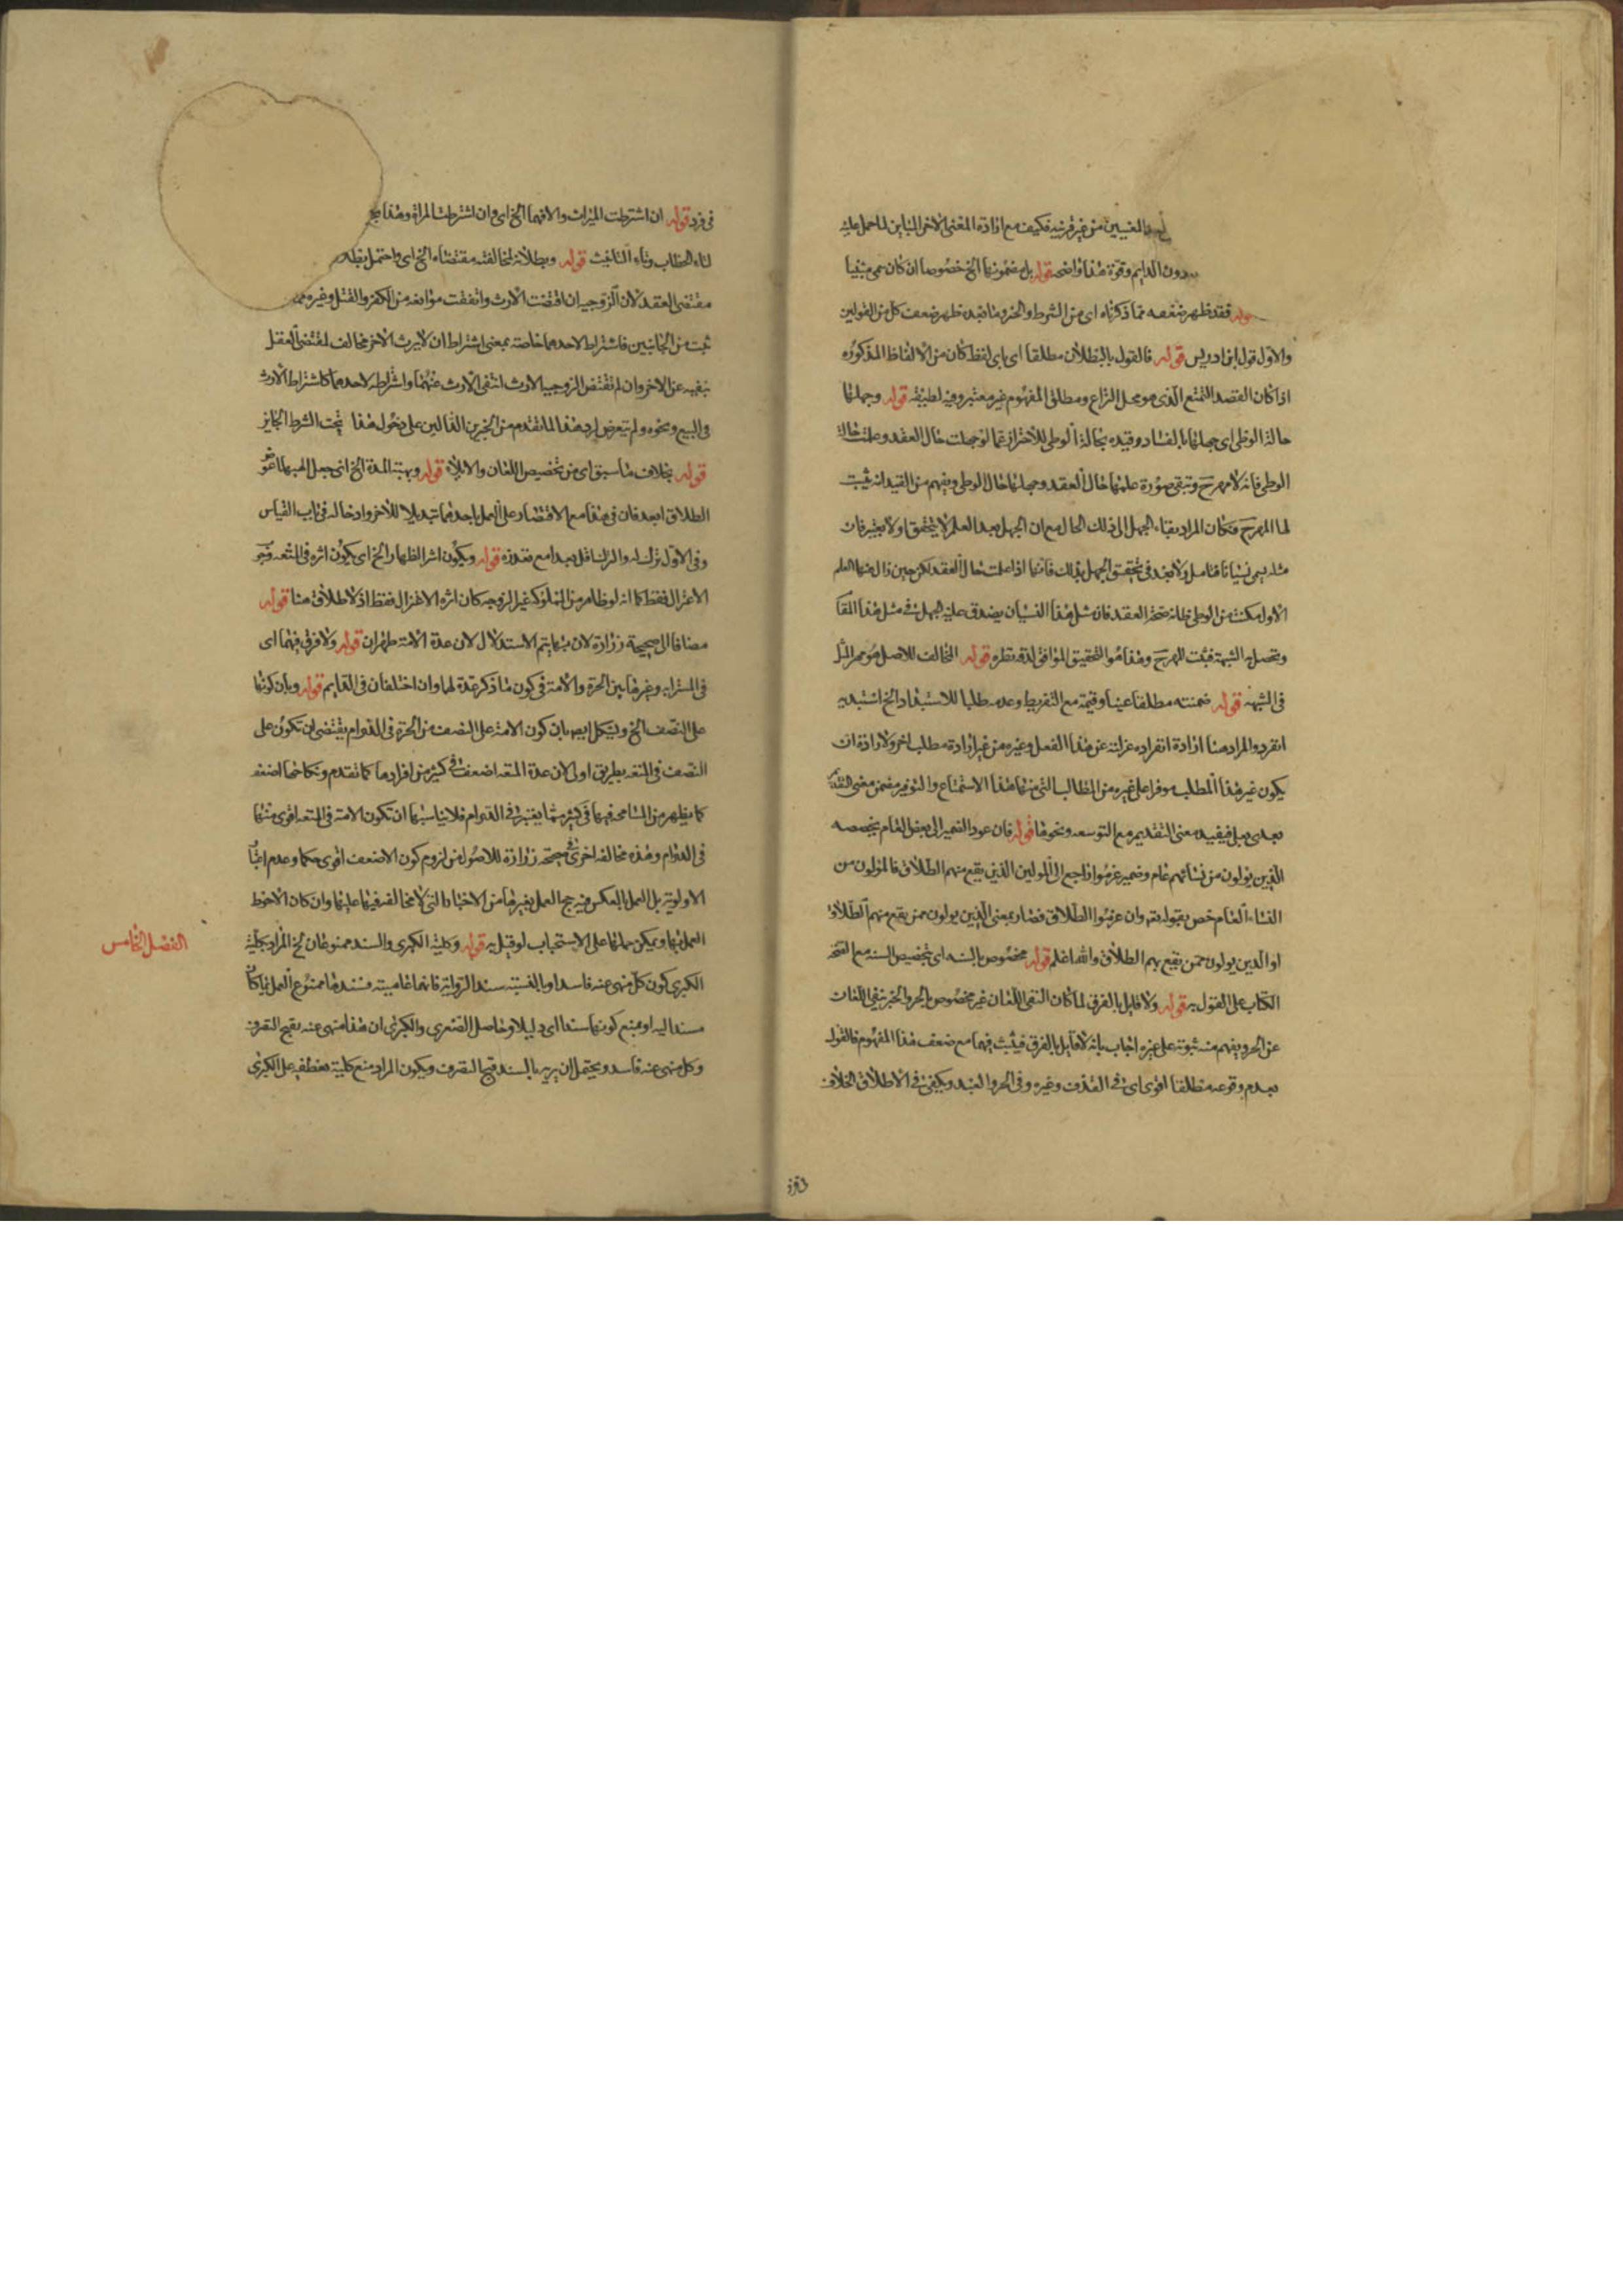 المغيبين من غير قرينة فكيف مع ارادة المعنى الاخر المباين لما حمل عليه
بدون الدايم وقوة هذا واضحة قوله بل مضمونها الخ خصوصا ان كان مبنيا
فقد ظهر ضعفه مما ذكرناه اى من الشرط والخبر وما فيه ظهر ضعف كل من القولين
والاول قول ابن ادريس قوله فالقول بالبطلان مطلقا اى باى لفظ كان من الالفاظ المذكوره
اذا كان القصد التمتع الذى هو محل النزاع ومطلق المفهوم غير معتبر وفيه لطيفة قوله وجهلها
حالة الوطى اى جهلها بالفساد وقيده بحالة الوطى للاحتراز عما لو جهلت حال العقد وعلمت حالة
الوطى فانه لا مهر ح وتبقى صورة علمها حال العقد وجهلها حال الوطى ويفهم من القيد انه يثبت
لها المهر ح وكان المراد بقاء الجهل الى ذلك الحال مع ان الجهل بعد العلم لا يتحقق او لا يعتبر فان
مثله يسمى نسيانا فتامل ولا بعد فى تحقق الجهل بذلك فانها اذا علمت حال العقد لكن حين زال عنها العلم
الاول مكنت من الوطى ظانة صحة العقد فان مثل هذا النسيان يصدق عليه الجهل فى مثل هذا المقا
وتحصل به الشبهة فيثبت المهر ح وهذا هو التحقيق الموافق لدقة نظره قوله المخالف للاصل هو مهر المثل
فى الشبهة قوله ضمنته مطلقا عينا وقيمة مع التفريط وعدمه طلبا للاستبعاد الخ استبد به
انفرد والمراد هنا ارادة انفراده عزلته عن هذا الفعل وغيره من غير ارادة مطلب اخر ولا ارادة ان
يكون غير هذا المطلب موفرا على غيره من المطالب التى منها هذا الاستمتاع والتوفير مضمن معنى
يعدى بعلى فيفيد معنى التقديم مع التوسعه ونحوها قوله فان عود الضمير الى بعض العام يخصصه
الذين يولون من نسائهم عام وضمير عزموا راجع الى المولين الذين يقع منهم الطلاق فالمولون من
النساء العام خص بقوله تع وان عزموا الطلاق فصار بمعنى الذين يولون ممن يقع منهم الطلاق
او الذين يولون ممن يقع بهم الطلاق والله اعلم قوله مخصوص بالسنه اى بتخصيص السنه مع
الكتاب على القول به قوله ولا قايل بالفرق لما كان النفى اللعان غير مخصوص بالحر والخبر بنفى اللعان
عن الحر ويفهم منه ثبوته على غيره اجاب بانه لا قايل بالفرق فيثبت فيهما مع ضعف هذا المفهوم فالقول
بعدم وقوعه مطلقا اقوى اى فى القذف وغيره وفى الحر والعبد ويكفى فى الاطلاق الخلاف
فى فرد قوله ان اشترطت الميراث والافهما الخ اى وان اشترطت المراة وهذا
لتاء الخطاب وتاء التانيث قوله وبطلانه لمخالفته مقتضاه الخ اى واحتمل بطله
مقتضى العقد لان الزوجيه ان اقتضت الارث وانتفت موانعه من الكفر والقتل وغيره
ثبت من الجانبين فاشتراط لاحدهما خاصة بمعنى اشتراط ان لا يرث الاخر مخالف لمقتضى العقد
بنفيه عن الاخر وان لم تقتض الزوجية الارث انتفى الارث عنهما واشتراطه لاحدهما كاشتراط الارث
فى البيع ونحوه ولم يتعرض لرد هذا لما تقدم من الخبرين الدالين على دخول هذا تحت الشرط الجايز
قوله بخلاف ما سبق اى من تخصيص اللعان والايلاء قوله وهبته المدة الخ انى جعل الهبه
الطلاق ابعد فان فى هذا مع الاقتصار على العمل باحدهما تبديلا للاخر وادخاله فى باب القياس
وفى الاول ترك له والترك اقل بعدا مع تعذره قوله ويكون اثر الظهار الخ اى يكون اثره فى المتعه
الاعتزال فقط كما انه لو ظاهر من المملوكة غير الزوجه كان اثره الاعتزال فقط اذ لا طلاق هنا قوله
مضافا الى صحيحة زرارة لان بها يتم الاستدلال لان عدة الامة طهران قوله ولا فرق فيهما اى
فى المسترابه وغيرها بين الحرة والامة فى كون ما ذكر عدة لهما وان اختلفتا فى الدايم قوله وبان كونها
على النصف الخ ويشكل ايضا بان كون الامة على النصف من الحرة فى الدوام يقتضى ان تكون على
النصف فى المتعه بطريق اولى لان عدة المتعه اضعف فى كثير من افرادها كما تقدم ونكاحها اضعف
كما يظهر من المسامحه فيها فى كثير مما يعتبر فى الدوام فلا يناسبها ان تكون الامة فى المتعه اقوى منها
فى الدوام وهذه مخالفه اخرى فى صحيحة زرارة للاصول من لزوم كون الاضعف اقوى حكما وعدم
الاولوية بل العمل بالعكس فيرجح العمل بغيرها من الاخبار التى لا مخالفه فيها عليها وان كان الاحوط
العمل بها ويمكن حملها على الاستحباب لو قيل به قوله وكلية الكبرى والسند ممنوعان الخ المراد بكلية
الكبرى كون كل منهى عنه فاسدا وبالنسبة سند الرواية فانها عامية فسندها ممنوع العمل
مستند اليه او بمنع كونها سندا اى دليلا وحاصل الصغرى والكبرى ان هذا منهى عنه بقبح التصرف
وكل منهى عنه فاسد ويحتمل ان يريد بالسند قبح التصرف ويكون المراد منع كلية عطفه على الكبرى
الفصل الخامس